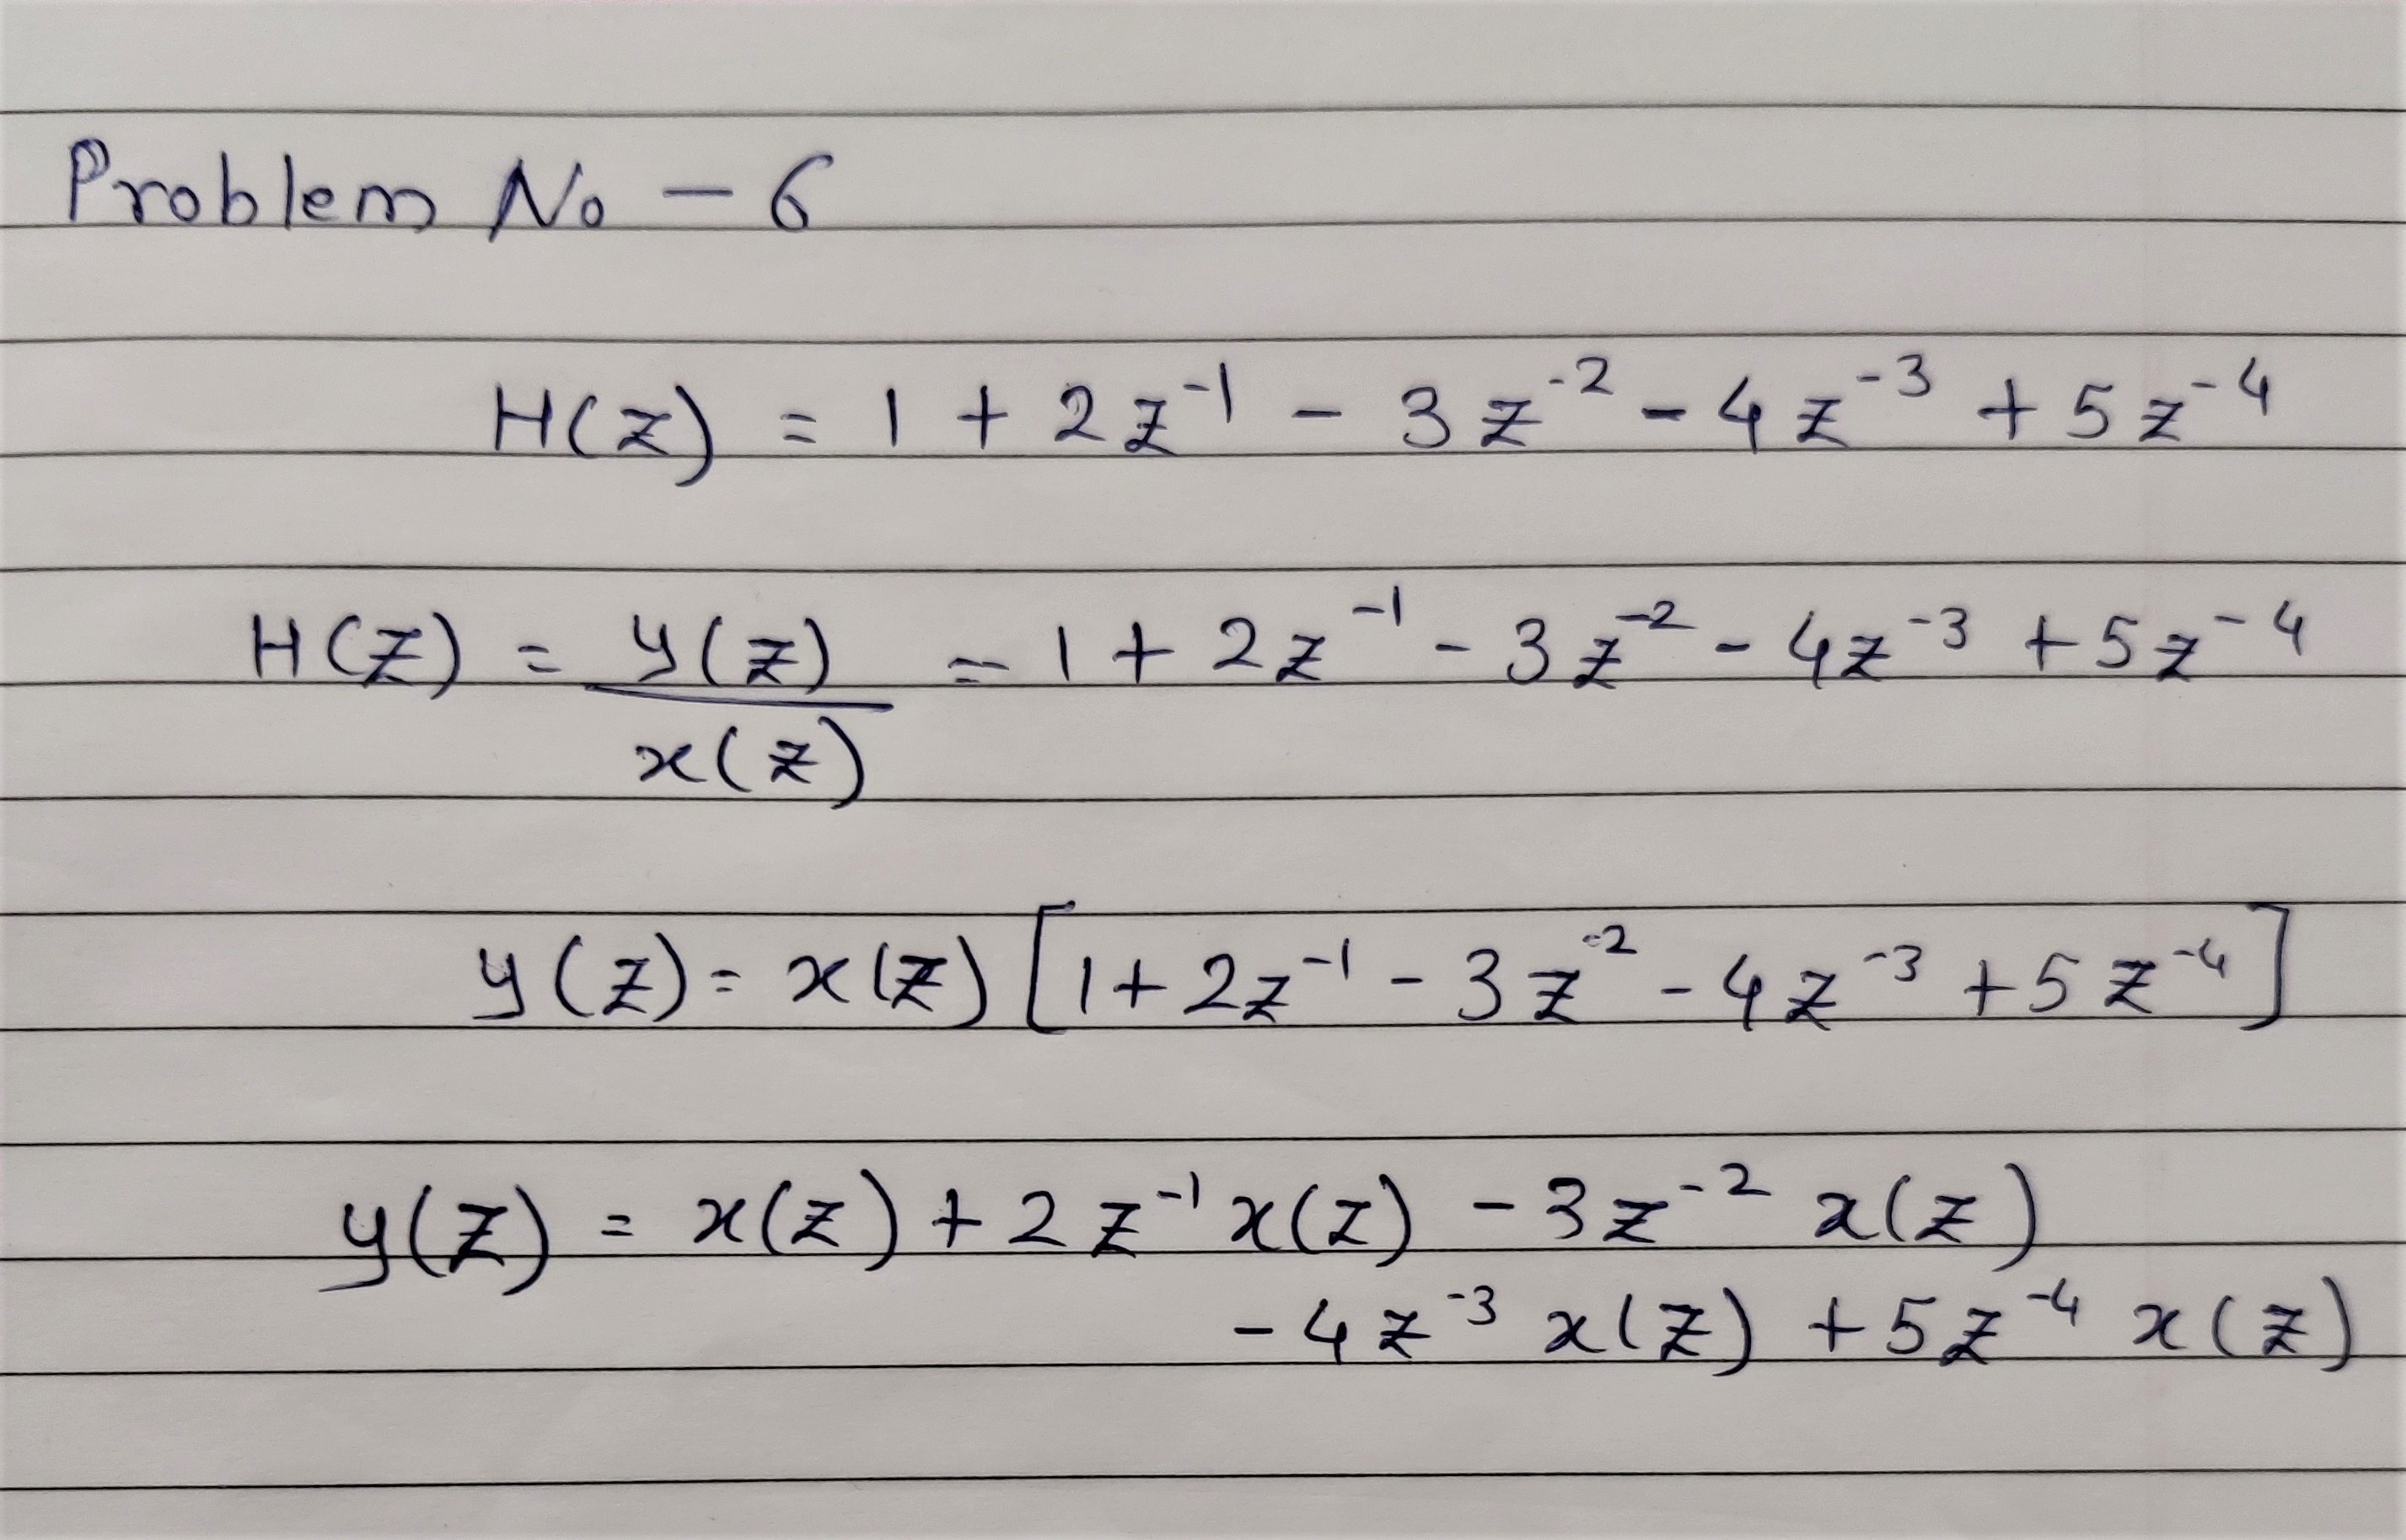 Problem No - 6
H(z) = 1 + 2z⁻¹ - 3z⁻² - 4z⁻³ + 5z⁻⁴
H(z) = y(z) / x(z) = 1 + 2z⁻¹ - 3z⁻² - 4z⁻³ + 5z⁻⁴
y(z) = x(z) [1 + 2z⁻¹ - 3z⁻² - 4z⁻³ + 5z⁻⁴]
y(z) = x(z) + 2z⁻¹ x(z) - 3z⁻² x(z)
- 4z⁻³ x(z) + 5z⁻⁴ x(z)